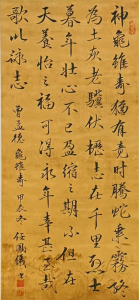 神龜雖壽猶有竟時騰蛇乘霧終
為土灰老驥伏櫪志在千里烈士
暮年壯心不已盈縮之期不但在
天養怡之福可得永年幸甚至哉
歌以詠志
曹孟德龜雖壽 任鳳儀